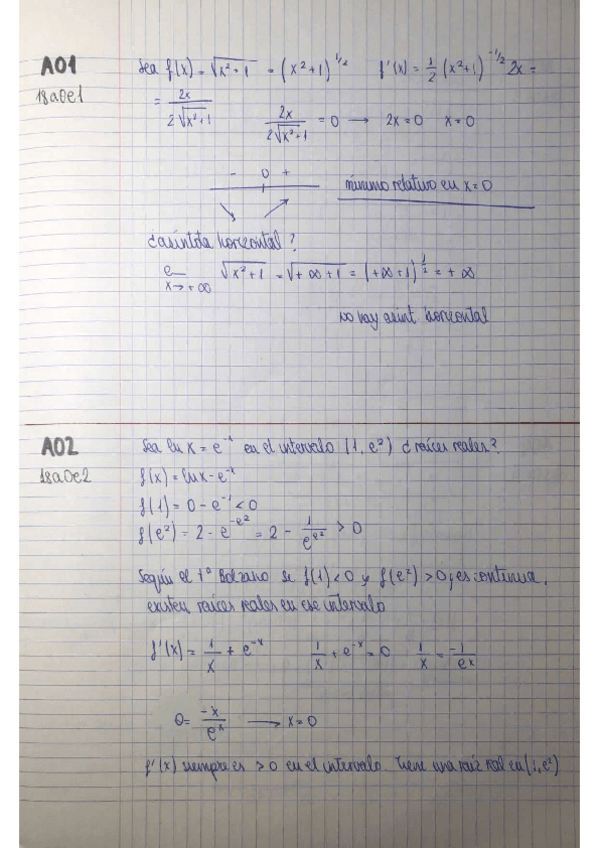 A01
18a0e1
Sea f(x) = √(x²+1) = (x²+1)^(1/2) f'(x) = 1/2 (x²+1)^(-1/2) 2x =
= 2x / 2√(x²+1) 2x / 2√(x²+1) = 0 → 2x = 0 x = 0
- 0 +
mínimo relativo en x = 0
¿asíntota horizontal?
x→+∞ √(x²+1) = √(+∞+1) = (+∞+1)^(1/2) = +∞
no hay asint. horizontal
A02
18a0e2
Sea ln x = e^(-x) en el intervalo (1, e²) ¿raíces reales?
f(x) = ln x - e^(-x)
f(1) = 0 - e^(-1) < 0
f(e²) = 2 - e^(-e²) = 2 - 1/e^(e²) > 0
Según el Tª Bolzano si f(1) < 0 y f(e²) > 0 y es continua,
existen raíces reales en ese intervalo
f'(x) = 1/x + e^(-x) 1/x + e^(-x) = 0 1/x = -1/e^x
0 = -x/e^x → x = 0
f'(x) siempre es > 0 en el intervalo. Tiene una raíz real en (1, e²)